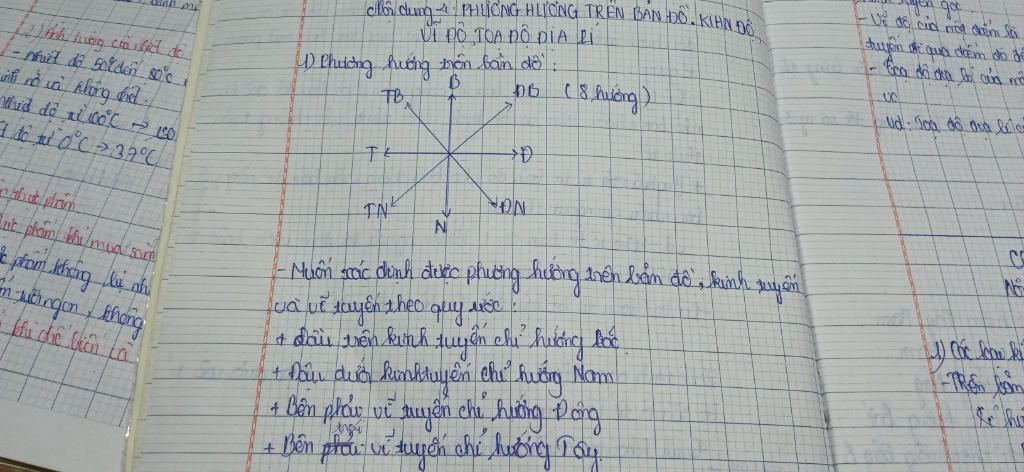 Nội dung 4: PHƯƠNG HƯỚNG TRÊN BẢN ĐỒ. KINH ĐỘ,
VĨ ĐỘ, TỌA ĐỘ ĐỊA LÍ
1) Phương hướng trên bản đồ:
B
TB
ĐB
(8 hướng)
T
Đ
TN
ĐN
N
- Muốn xác định được phương hướng trên bản đồ, kinh tuyến
và vĩ tuyến theo quy ước:
+ Đầu trên kinh tuyến chỉ hướng Bắc.
+ Đầu dưới kinh tuyến chỉ hướng Nam
+ Bên phải vĩ tuyến chỉ hướng Đông
+ Bên trái vĩ tuyến chỉ hướng Tây.
2) Ảnh hưởng của nhiệt độ
- nhiệt độ 50°C đến 80°C
nở và không chết.
nhiệt độ từ 100°C →
độ từ 0°C → 37°C
thực phẩm
thực phẩm khi mua sắm
phẩm không bị
tươi ngon, không
khi chế biến
- Vĩ độ của một điểm là
tuyến đi qua điểm đó
- Tọa độ địa lí của
vd: Tọa độ địa lí
1) Các loại kí
- Trên bản